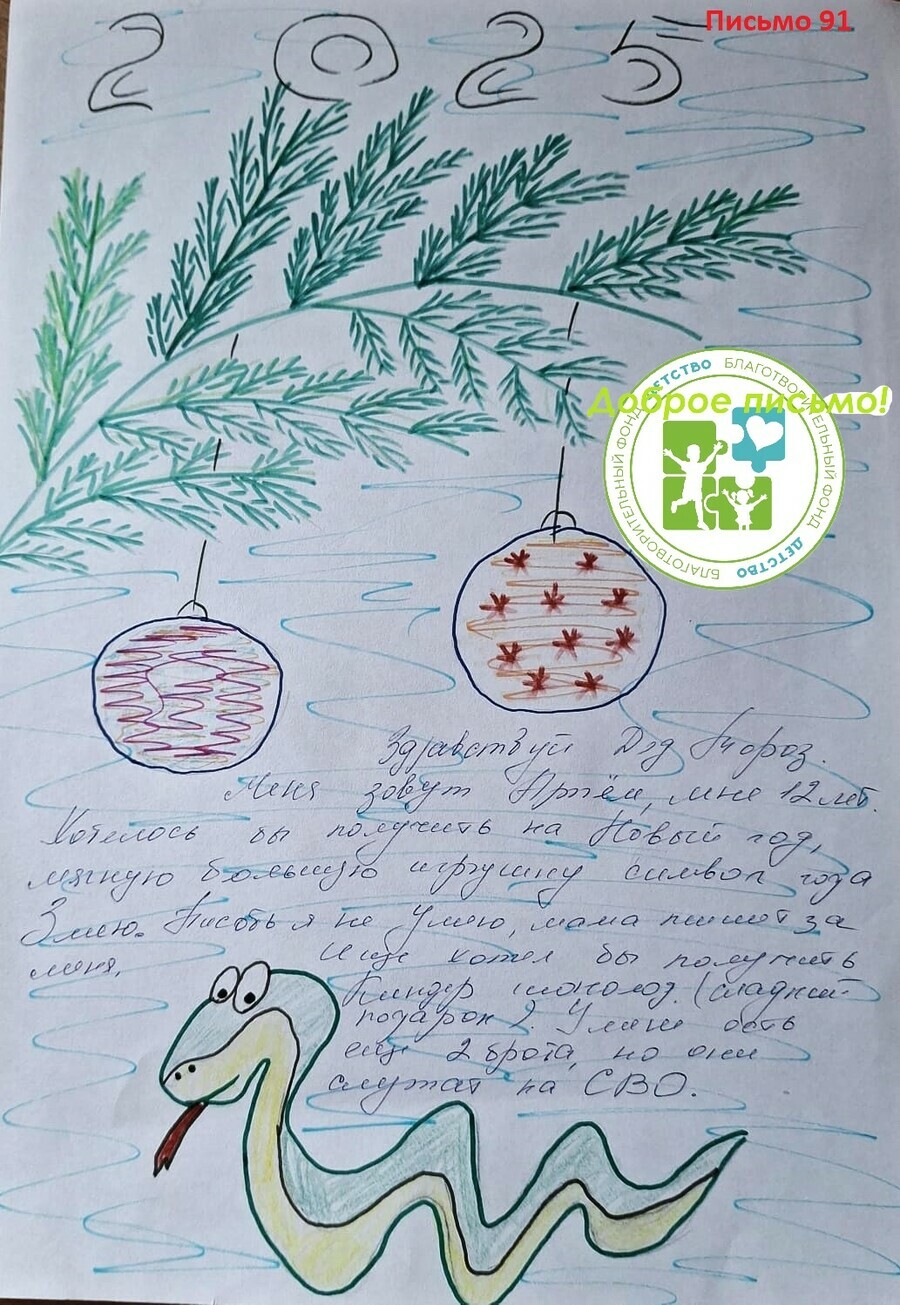 Письмо 91
2025
БЛАГОТВОРИТЕЛЬНЫЙ ФОНД ДЕТСТВО БЛАГОТВОРИТЕЛЬНЫЙ ФОНД ДЕТСТВО
Доброе письмо!
Здравствуй Дед Мороз.
Меня зовут Артём, мне 12 лет.
Хотелось бы получить на Новый год,
мягкую большую игрушку символ года
Змею. Писать я не умею, мама пишет за
меня. Ище хотел бы получить
Киндер шоколад (сладкий
подарок). У меня есть
еще 2 брата, но они
служат на СВО.